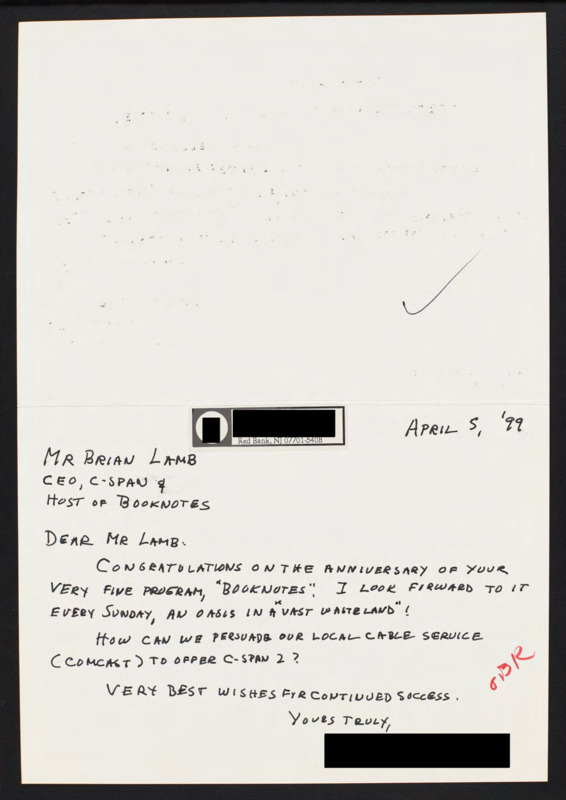 Red Bank, NJ 07701-5408
APRIL 5, '99
MR BRIAN LAMB
CEO, C-SPAN &
HOST OF BOOKNOTES
DEAR MR LAMB:
CONGRATULATIONS ON THE ANNIVERSARY OF YOUR
VERY FINE PROGRAM, "BOOKNOTES". I LOOK FORWARD TO IT
EVERY SUNDAY, AN OASIS IN A "VAST WASTELAND"!
HOW CAN WE PERSUADE OUR LOCAL CABLE SERVICE
(COMCAST) TO OFFER C-SPAN 2?
VERY BEST WISHES FOR CONTINUED SUCCESS.
YOURS TRULY,